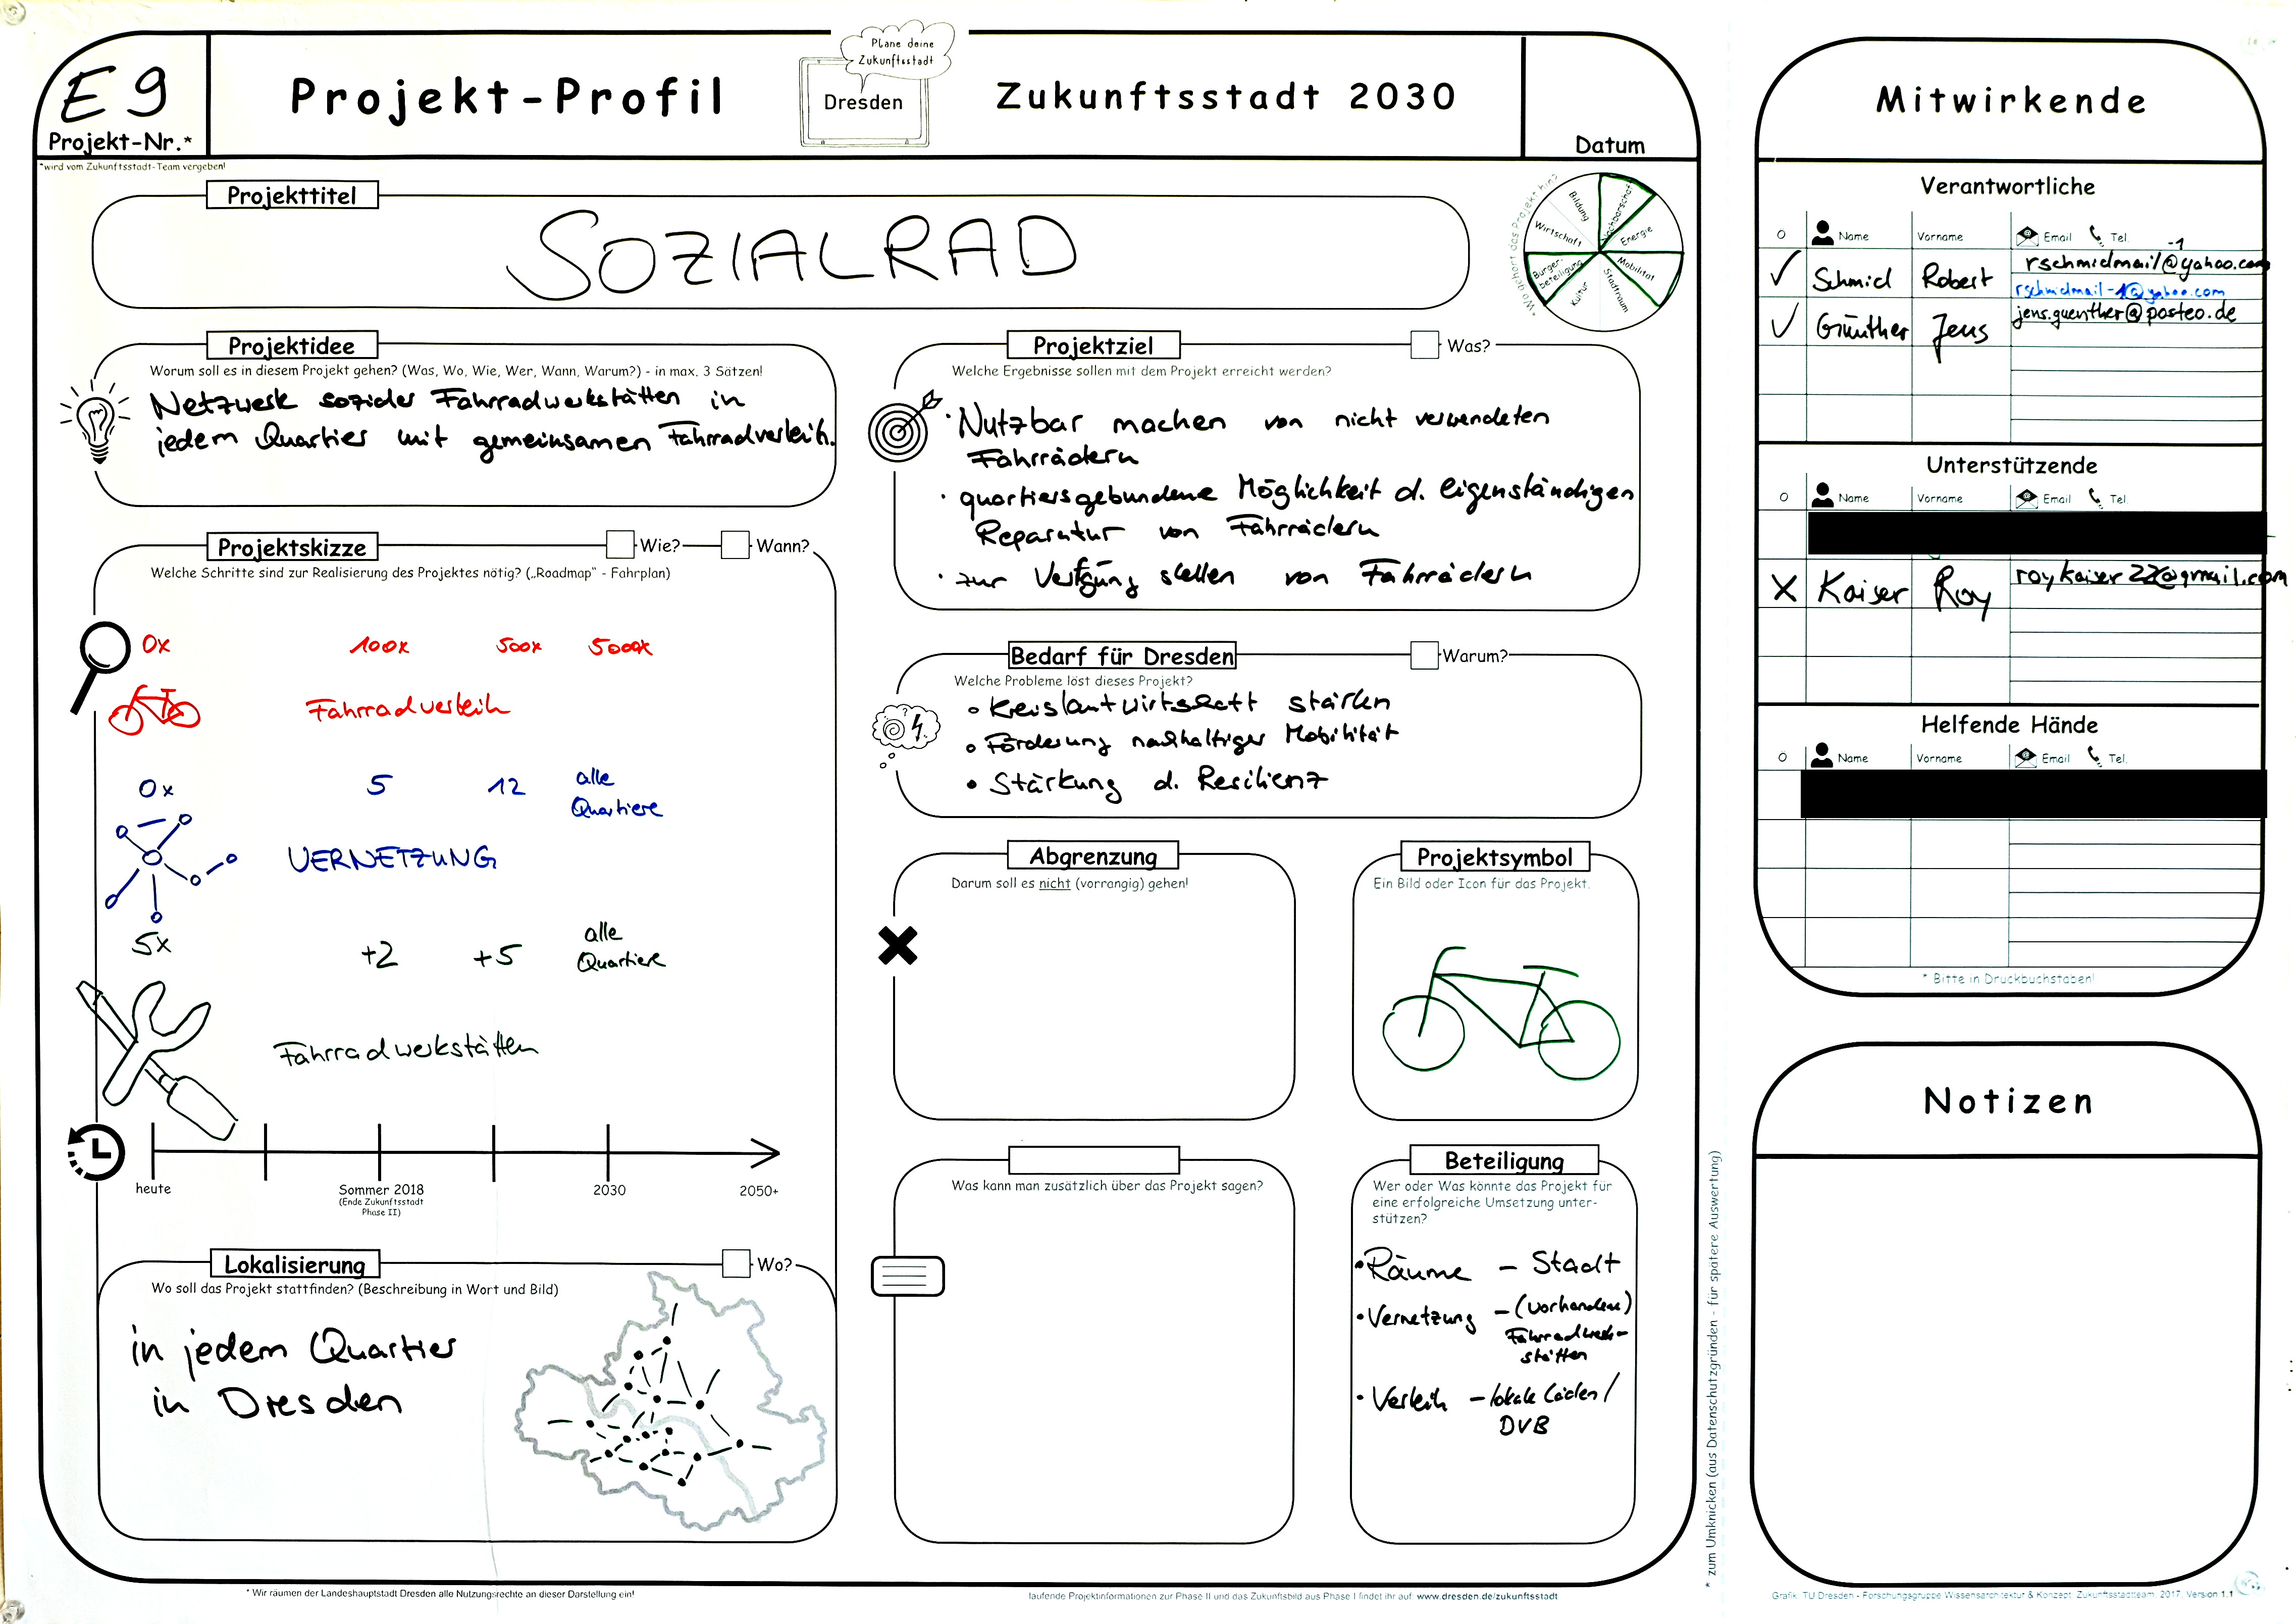 E9
Projekt-Nr.*
*wird vom Zukunftsstadt-Team vergeben!
Projekt-Profil
Plane deine
Zukunftsstadt
Dresden
Zukunftsstadt 2030
Datum
Projekttitel
SOZIALRAD
*Wo gehört das Projekt hin?
Bildung
Nachbarschaft
Energie
Mobilität
Stadtraum
Kultur
Bürger-
beteiligung
Wirtschaft
Projektidee
Worum soll es in diesem Projekt gehen? (Was, Wo, Wie, Wer, Wann, Warum?) - in max. 3 Sätzen!
Netzwerk sozialer Fahrradwerkstätten in
jedem Quartier mit gemeinsamen Fahrradverleih.
Projektskizze
Wie?
Wann?
Welche Schritte sind zur Realisierung des Projektes nötig? („Roadmap" - Fahrplan)
0x 100x 500x 5000x
Fahrradverleih
0x 5 12 alle
Quartiere
VERNETZUNG
5x +2 +5 alle
Quartiere
Fahrradwerkstätten
heute
Sommer 2018
(Ende Zukunftsstadt
Phase II)
2030
2050+
Lokalisierung
Wo?
Wo soll das Projekt stattfinden? (Beschreibung in Wort und Bild)
in jedem Quartier
in Dresden
Projektziel
Was?
Welche Ergebnisse sollen mit dem Projekt erreicht werden?
· Nutzbar machen von nicht verwendeten
Fahrrädern
· quartiersgebundene Möglichkeit d. eigenständigen
Reparatur von Fahrrädern
· zur Verfgüng stellen von Fahrrädern
Bedarf für Dresden
Warum?
Welche Probleme löst dieses Projekt?
Kreislaufwirtschaft stärken
Förderung nachhaltiger Mobilität
Stärkung d. Resilienz
Abgrenzung
Darum soll es nicht (vorrangig) gehen!
Projektsymbol
Ein Bild oder Icon für das Projekt.
Was kann man zusätzlich über das Projekt sagen?
Beteiligung
Wer oder Was könnte das Projekt für
eine erfolgreiche Umsetzung unter-
stützen?
· Räume - Stadt
· Vernetzung - (vorhandene)
Fahrradwerk-
stätten
· Verleih - lokale Läden /
DVB
* Wir räumen der Landeshauptstadt Dresden alle Nutzungsrechte an dieser Darstellung ein!
laufende Projektinformationen zur Phase II und das Zukunftsbild aus Phase I findet ihr auf: www.dresden.de/zukunftsstadt
* zum Umknicken (aus Datenschutzgründen - für spätere Auswertung)
Mitwirkende
Verantwortliche
Name Vorname Email Tel.
-1
Schmid Robert rschmidmail@yahoo.com
rschmidmail-1@yahoo.com
Günther Jens jens.guenther@posteo.de
Unterstützende
Name Vorname Email Tel.
Kaiser Roy roykaiser22@gmail.com
Helfende Hände
Name Vorname Email Tel.
* Bitte in Druckbuchstaben!
Notizen
Grafik: TU Dresden - Forschungsgruppe Wissensarchitektur & Konzept: Zukunftsstadtteam, 2017, Version 1.1